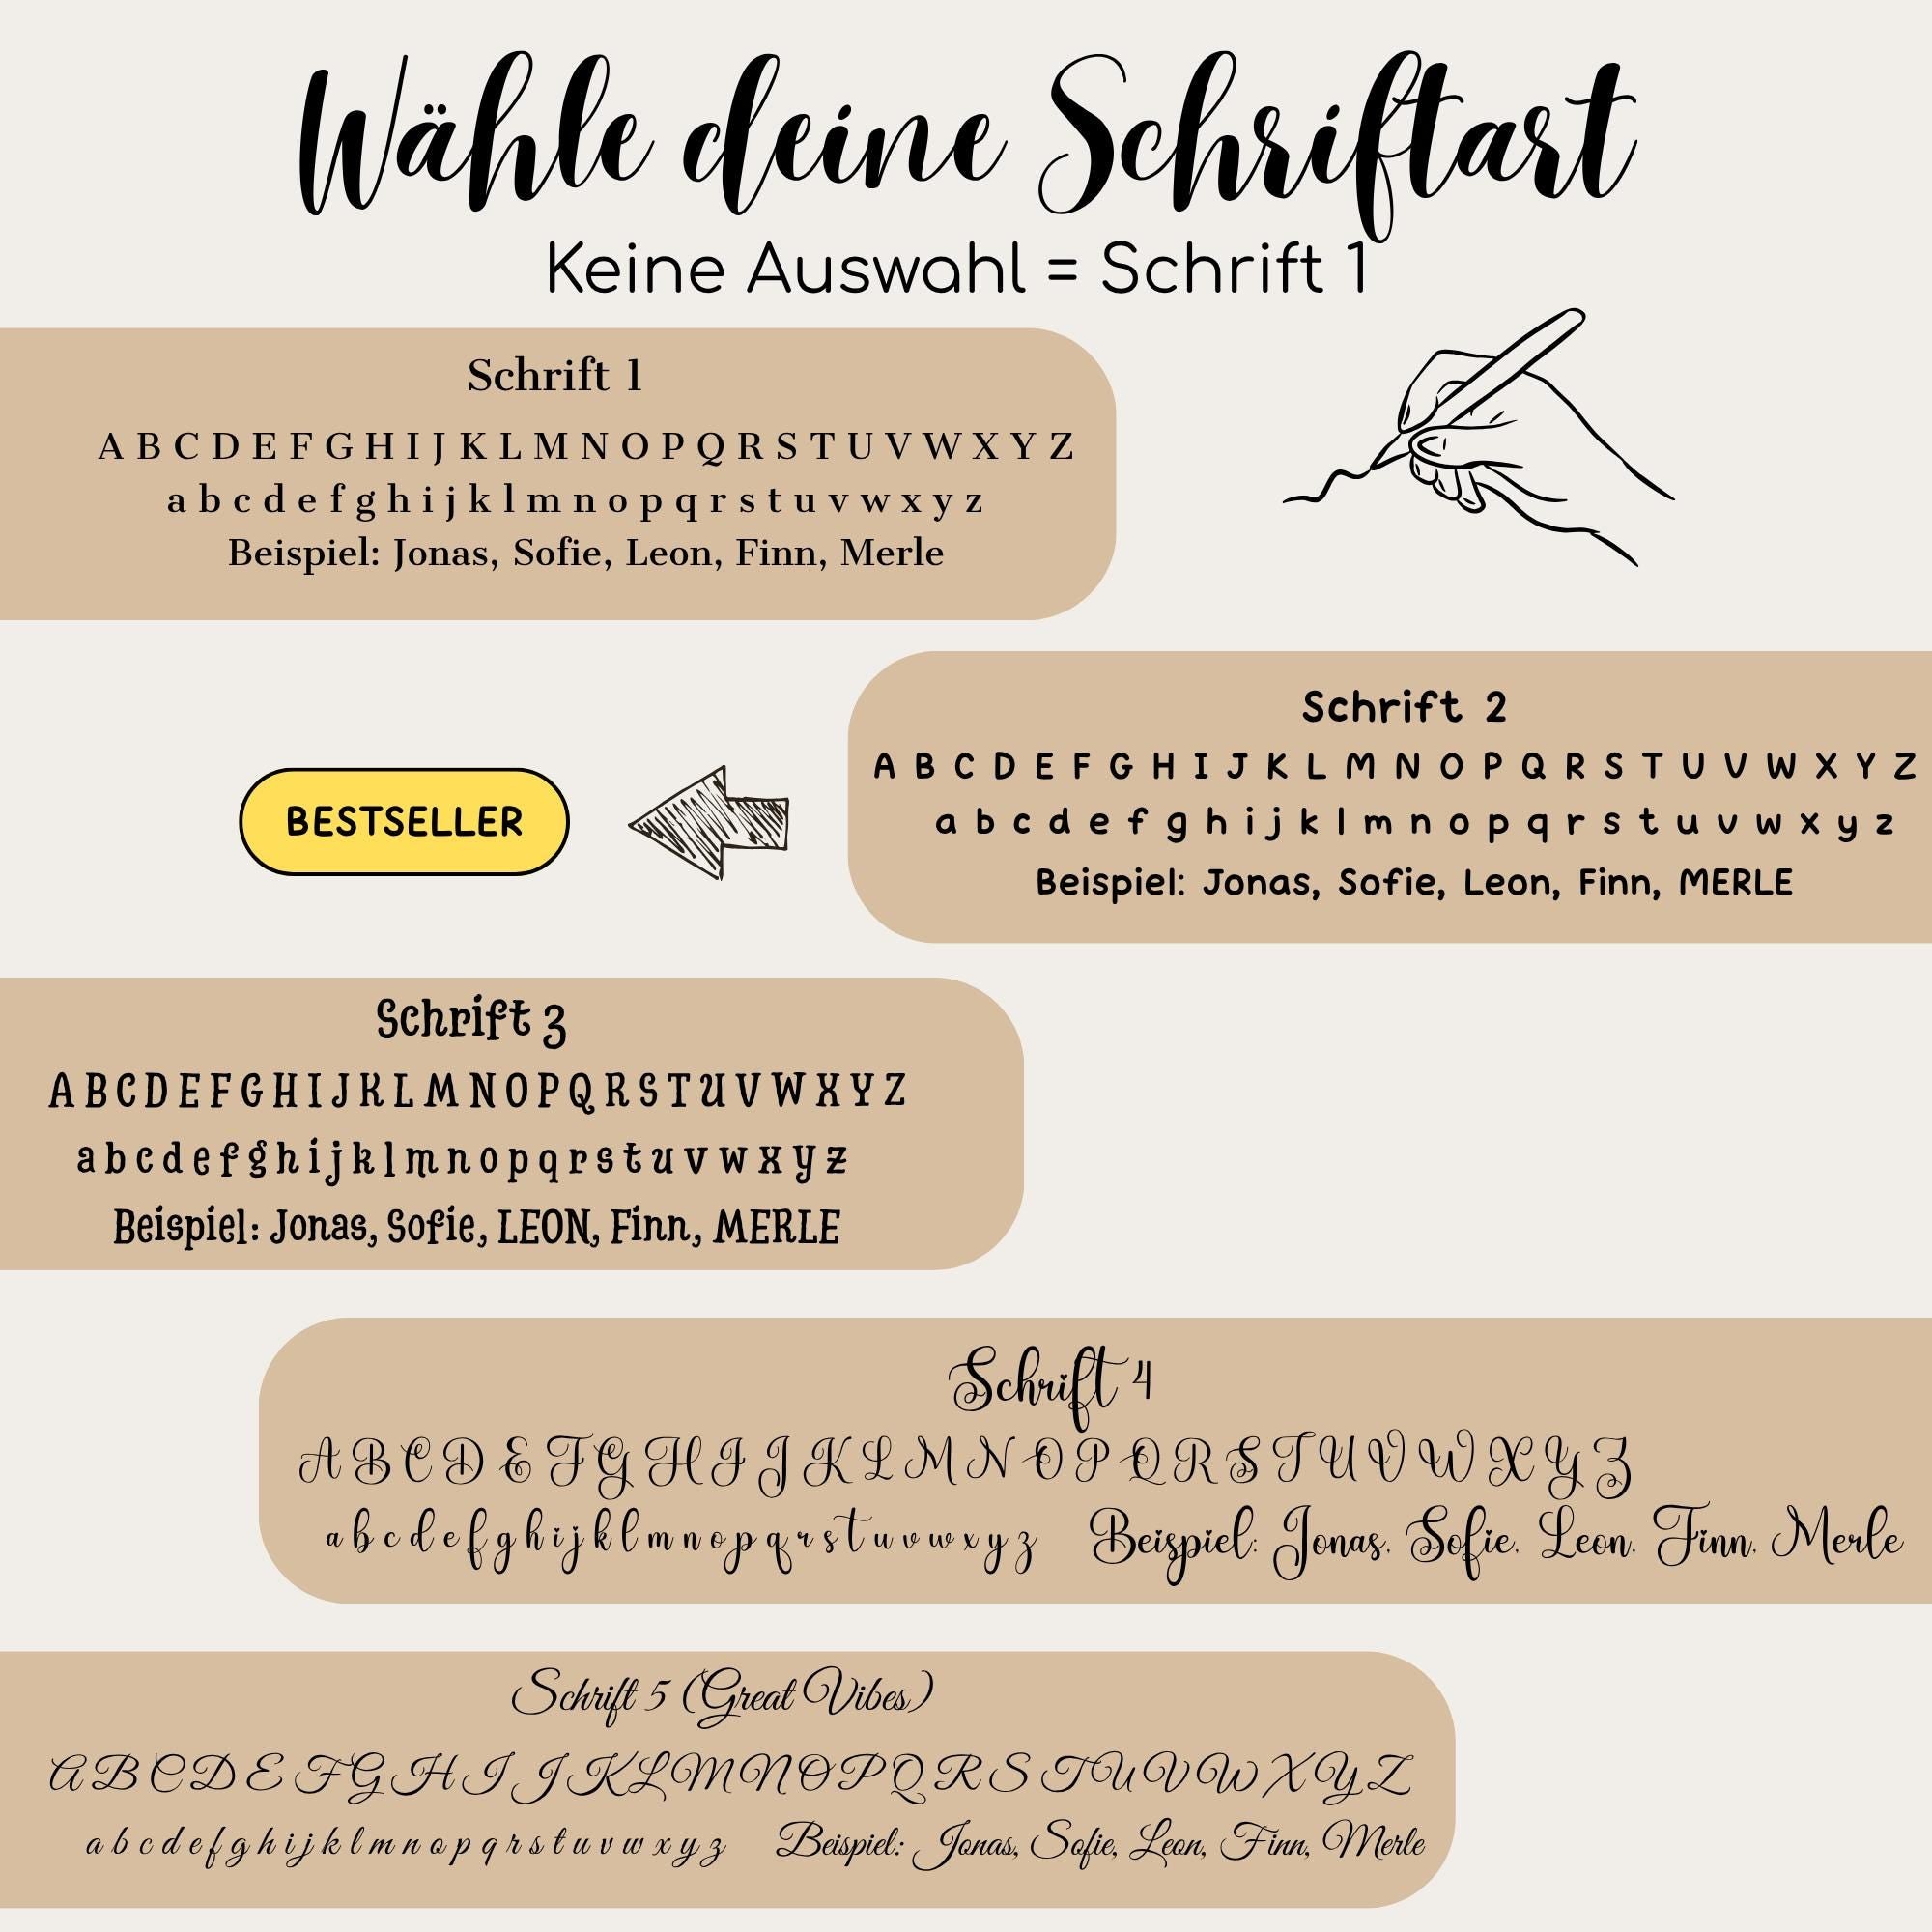 Wähle deine Schriftart
Keine Auswahl = Schrift 1
Schrift 1
A B C D E F G H I J K L M N O P Q R S T U V W X Y Z
a b c d e f g h i j k l m n o p q r s t u v w x y z
Beispiel: Jonas, Sofie, Leon, Finn, Merle
BESTSELLER
Schrift 2
A B C D E F G H I J K L M N O P Q R S T U V W X Y Z
a b c d e f g h i j k l m n o p q r s t u v w x y z
Beispiel: Jonas, Sofie, Leon, Finn, MERLE
Schrift 3
A B C D E F G H I J K L M N O P Q R S T U V W X Y Z
a b c d e f g h i j k l m n o p q r s t u v w x y z
Beispiel: Jonas, Sofie, LEON, Finn, MERLE
Schrift 4
A B C D E F G H I J K L M N O P Q R S T U V W X Y Z
a b c d e f g h i j k l m n o p q r s t u v w x y z Beispiel: Jonas, Sofie, Leon, Finn, Merle
Schrift 5 (Great Vibes)
A B C D E F G H I J K L M N O P Q R S T U V W X Y Z
a b c d e f g h i j k l m n o p q r s t u v w x y z Beispiel: Jonas, Sofie, Leon, Finn, Merle